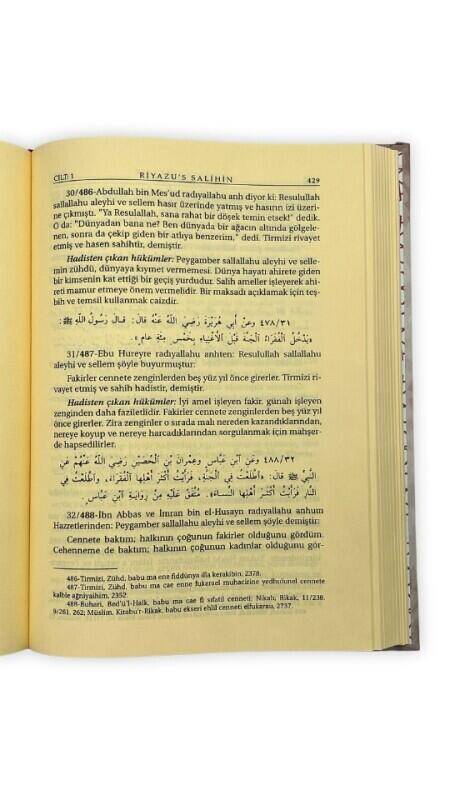 CİLT: 1 RİYAZU'S SALİHİN 429
30/486-Abdullah bin Mes'ud radıyallahu anh diyor ki: Resulullah
sallallahu aleyhi ve sellem hasır üzerinde yatmış ve hasırın izi üzeri-
ne çıkmıştı. "Ya Resulallah, sana rahat bir döşek temin etsek!" dedik.
O da: "Dünyadan bana ne? Ben dünyada bir ağacın altında gölgele-
nen, sonra da çekip giden bir atlıya benzerim," dedi. Tirmizi rivayet
etmiş ve hasen sahihtir, demiştir.
Hadisten çıkan hükümler: Peygamber sallallahu aleyhi veselle-
min zühdü, dünyaya kıymet vermemesi. Dünya hayatı ahirete giden
bir kimsenin kat ettiği bir geçiş yurdudur. Salih ameller işleyerek ahi-
reti mamur etmeye önem vermelidir. Bir maksadı açıklamak için teş-
bih ve temsil kullanmak caizdir.
٤٧٨/٣١ وعن أبي هُرَيْرَةَ رَضِيَ اللَّهُ عَنْهُ قالَ: قالَ رَسُولُ اللَّهِ ﷺ:
«يَدْخُلُ الْفُقَرَاءُ الْجَنَّةَ قَبْلَ الْأَغْنِيَاءِ بِخَمْسِ مِئَةِ عَامٍ».
31/487-Ebu Hureyre radıyallahu anhten: Resulullah sallallahu
aleyhi ve sellem şöyle buyurmuştur:
Fakirler cennete zenginlerden beş yüz yıl önce girerler. Tirmizi ri-
vayet etmiş ve sahih hadistir, demiştir.
Hadisten çıkan hükümler: İyi amel işleyen fakir, günah işleyen
zenginden daha faziletlidir. Fakirler cennete zenginlerden beş yüz yıl
önce girerler. Zira zenginler o sırada malı nereden kazandıklarından,
nereye koyup ve nereye harcadıklarından sorgulanmak için mahşer-
de hapsedilirler.
٤٨٨/٣٢ وعَنِ ابْنِ عَبَّاسٍ وعِمْرانَ بْنِ الْحُصَيْنِ رَضِيَ اللَّهُ عَنْهُمْ عَنِ
النَّبِيِّ ﷺ قَالَ: «اطَّلَعْتُ فِي الْجَنَّةِ، فَرَأَيْتُ أَكْثَرَ أَهْلِهَا الْفُقَرَاءَ، وَاطَّلَعْتُ فِي
النَّارِ فَرَأَيْتُ أَكْثَرَ أَهْلِهَا النِّسَاءَ». مُتَّفَقٌ عَلَيْهِ مِنْ رِوَايَةِ ابْنِ عَبَّاسٍ.
32/488-İbn Abbas ve İmran bin el-Husayn radıyallahu anhum
Hazretlerinden: Peygamber sallallahu aleyhi ve sellem şöyle demiştir:
Cennete baktım; halkının çoğunun fakirler olduğunu gördüm.
Cehenneme de baktım; halkının çoğunun kadınlar olduğunu gör-
486-Tirmizi, Zühd, babu ma ene fiddünya illa kerakibin, 2378.
487-Tirmizi, Zühd, babu ma cae enne fukarael muhacirine yedhulunel cennete
kable ağniyaihim, 2352.
488-Buhari, Bed'ü'l-Halk, babu ma cae fi sıfatil cenneti; Nikah; Rikak, 11/238,
9/261, 262; Müslim, Kitabu'r-Rikak, babu ekseri ehlil cenneti elfukarau, 2737.